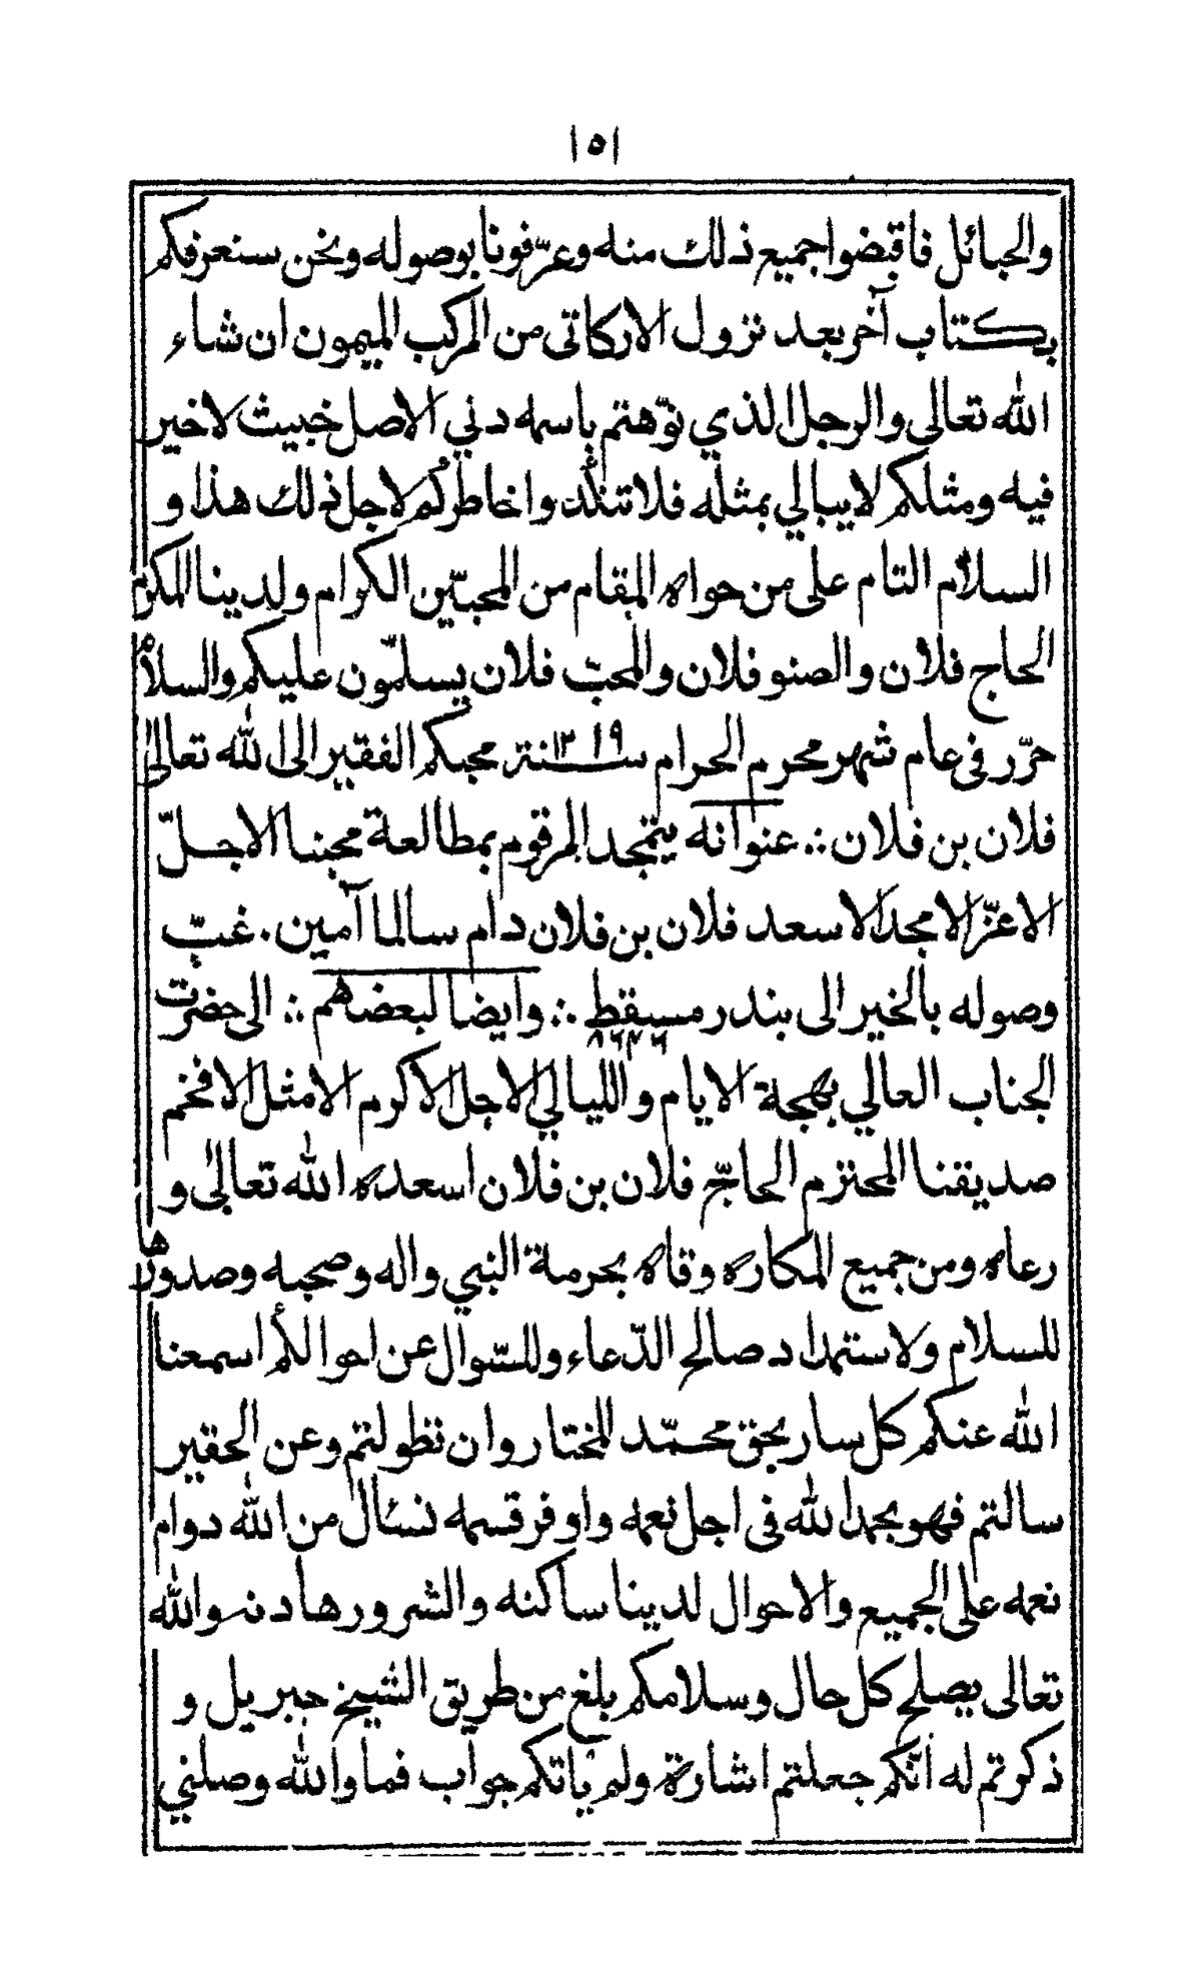 ١٥١
والجبائل فاقبضوا جميع ذلك منه وعرّفونا بوصوله ونحن سنعرفكم
بكتاب آخر بعد نزول الاركاتى من المركب الميمون ان شاء
الله تعالى والرجل الذي نوّهتم باسمه دني الاصل خبيث لا خير
فيه ومثلكم لا يبالي بمثله فلا تنكّدوا خاطركم لاجل ذلك هذا و
السلام التام على من حواه المقام من المحبّين الكرام ولدينا المكرم
الحاج فلان والصنو فلان والمحبّ فلان يسلّمون عليكم والسلام
حرّر فى عام شهر محرم الحرام سنة ١٢١٩ محبكم الفقير الى الله تعالى
فلان بن فلان ∴ عنوانه يتمجد المرقوم بمطالعة محبنا الاجلّ
الاعزّ الامجد الاسعد فلان بن فلان دام سالما آمين. غبّ
وصوله بالخير الى بندر مسقط ∴ وايضا لبعضهم ∴ الى حضرت
٨٦٤٦
الجناب العالي بهجة الايام والليالي الاجل الاكرم الامثل الافخم
صديقنا المحترم الحاجّ فلان بن فلان اسعده الله تعالى و
رعاه ومن جميع المكاره وقاه بحرمة النبي واله وصحبه وصدورها
للسلام ولاستمداد صالح الدّعاء وللسّوال عن احوالكم اسمعنا
الله عنكم كل سار بحق محمّد المختار وان تطولتم وعن الحقير
سالتم فهو بحمد الله فى اجل نعمه واوفر قسمه نسئال من الله دوام
نعمه على الجميع والاحوال لدينا ساكنه والشرور هادنه والله
تعالى يصلح كل حال وسلامكم بلغ من طريق الشيخ جبريل و
ذكرتم له انّكم جعلتم اشارة ولم ياتكم جواب فما والله وصلني